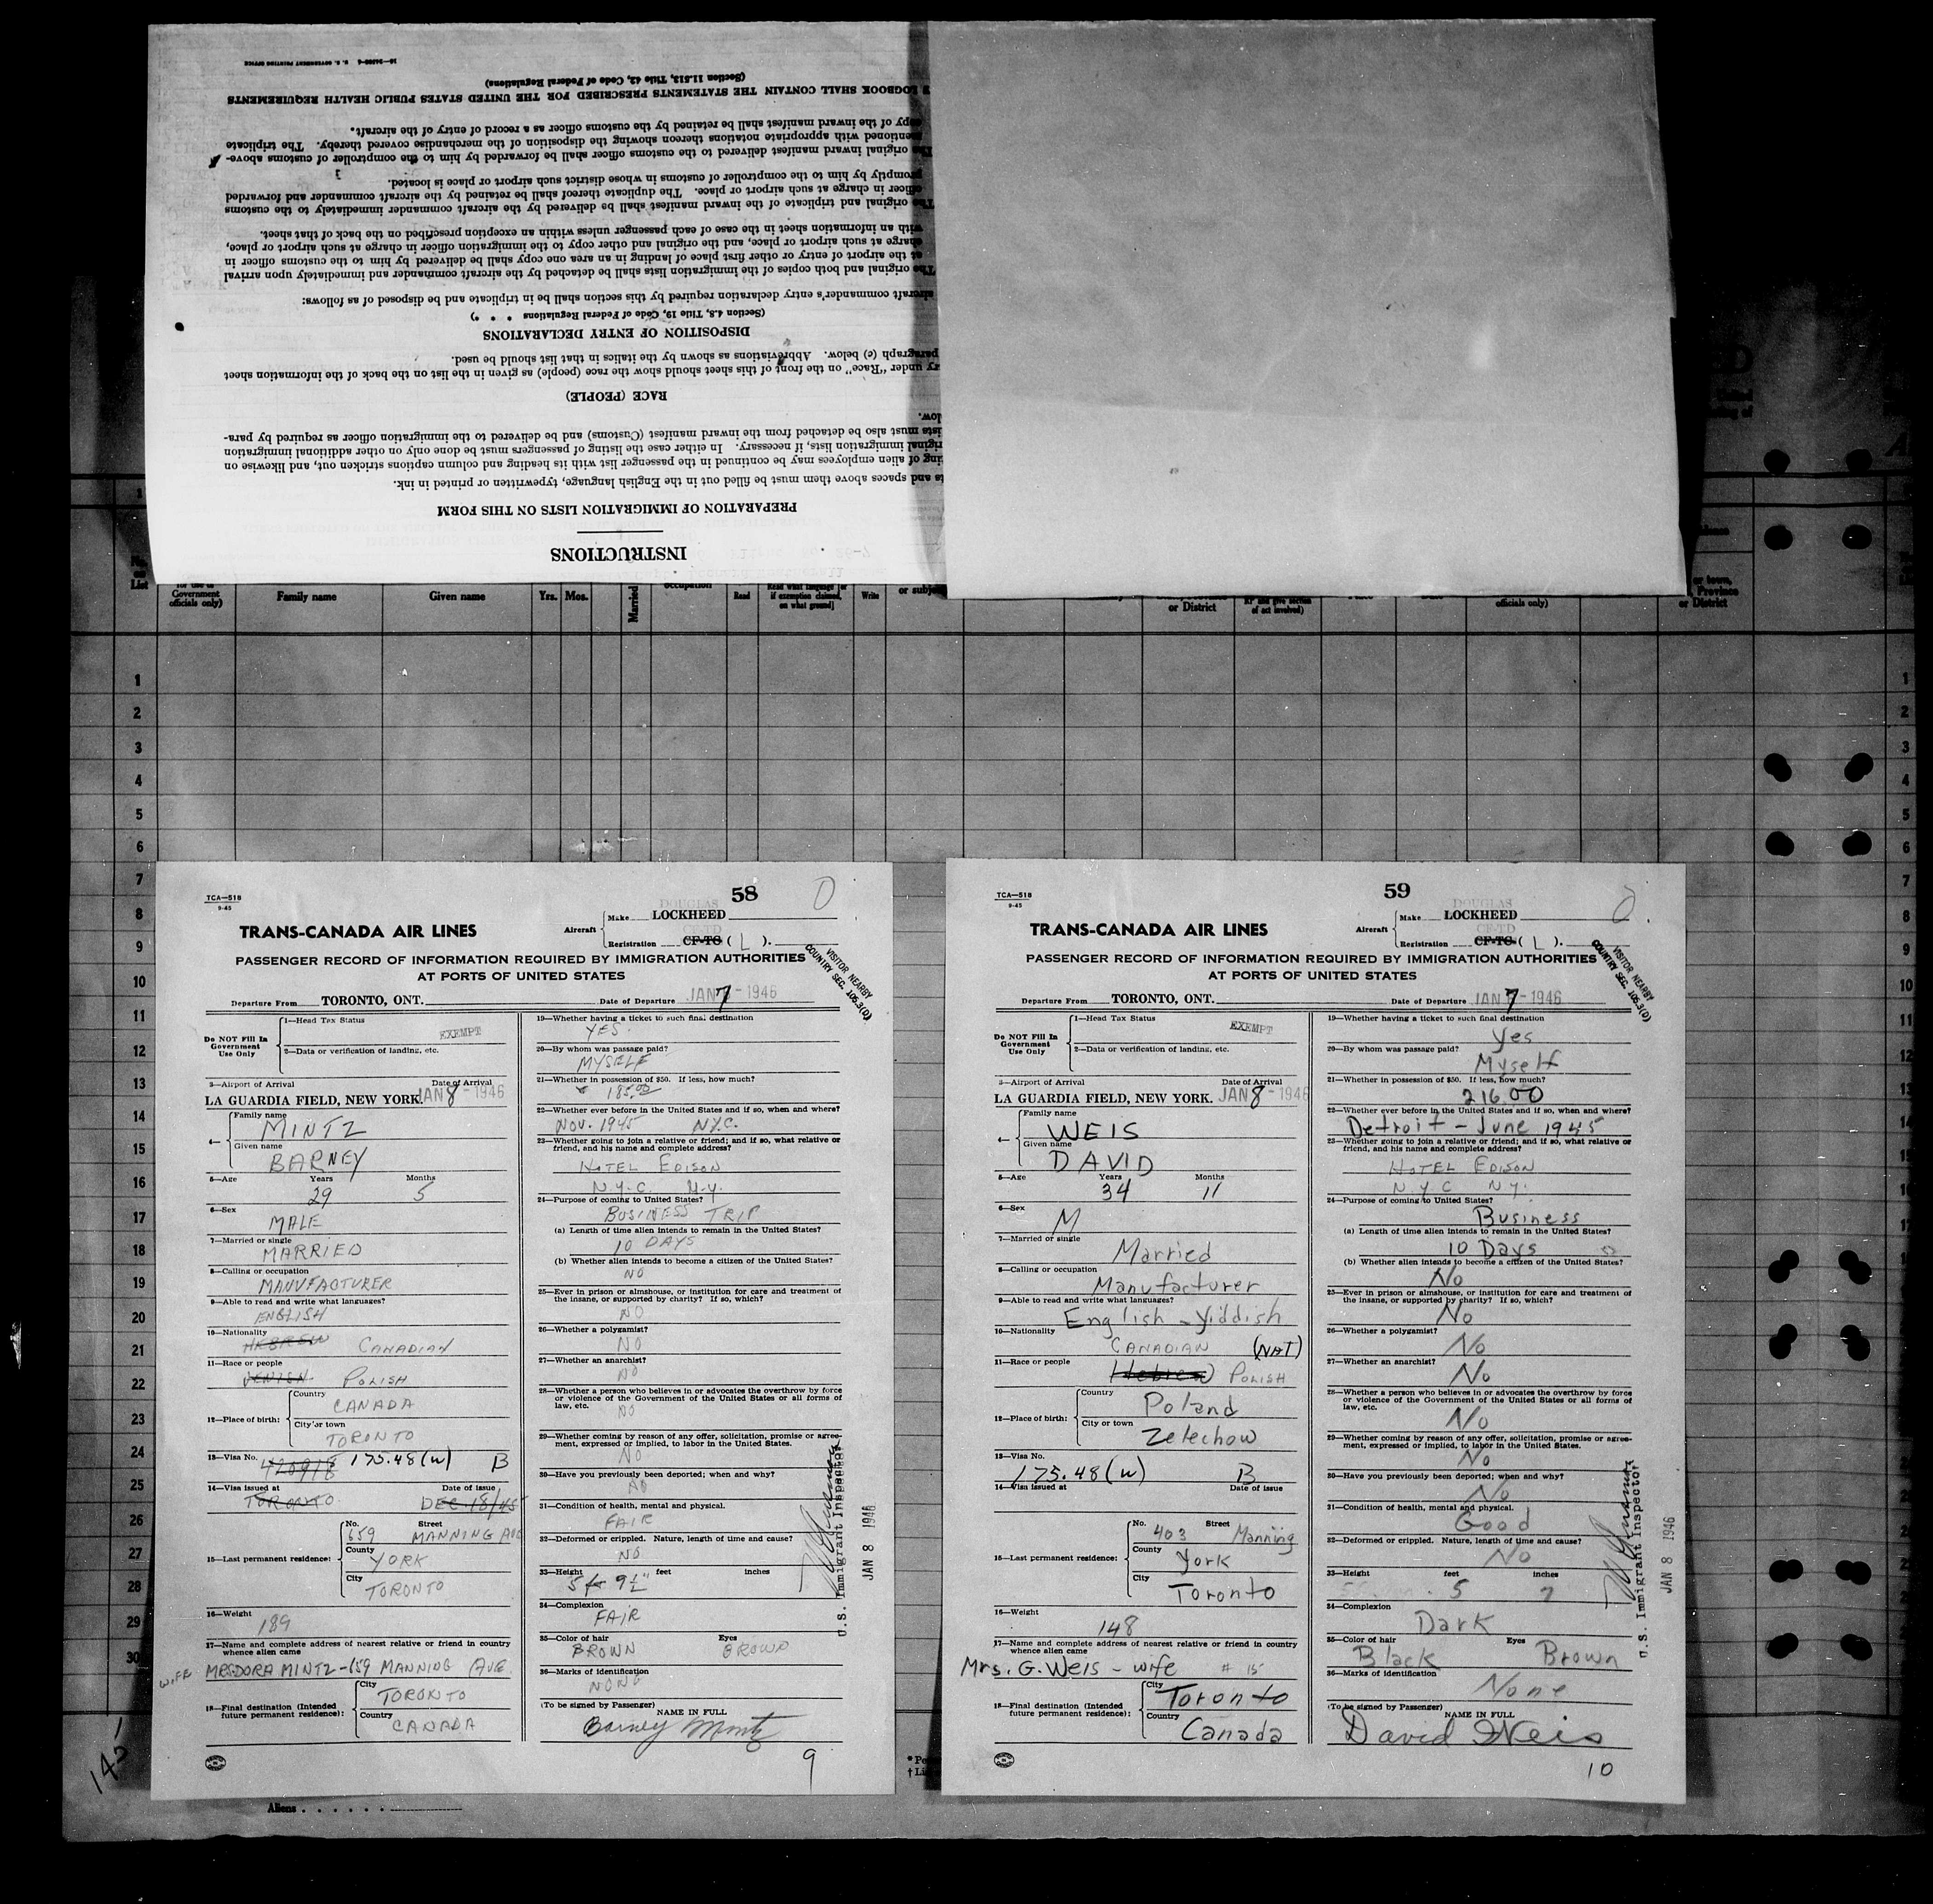 INSTRUCTIONS
PREPARATION OF IMMIGRATION LISTS ON THIS FORM
ts and spaces above them must be filled out in the English language, typewritten or printed in ink.
ing of alien employees may be continued in the passenger list with its heading and column captions stricken out, and likewise on
riginal immigration lists, if necessary. In either case the listing of passengers must be done only on other additional immigration
ists must also be detached from the inward manifest (Customs) and be delivered to the immigration officer as required by para-
low.
RACE (PEOPLE)
ry under "Race" on the front of this sheet should show the race (people) as given in the list on the back of the information sheet
paragraph (c) below. Abbreviations as shown by the italics in that list should be used.
DISPOSITION OF ENTRY DECLARATIONS
(Section 4.8, Title 19, Code of Federal Regulations * * *)
aircraft commander's entry declaration required by this section shall be in triplicate and be disposed of as follows:
The original and both copies of the immigration lists shall be detached by the aircraft commander and immediately upon arrival
at the airport of entry or other first place of landing in an area one copy shall be delivered by him to the customs officer in
charge at such airport or place, and the original and other copy to the immigration officer in charge at such airport or place,
with an information sheet in the case of each passenger unless within an exception prescribed on the back of that sheet.
The original and triplicate of the inward manifest shall be delivered by the aircraft commander immediately to the customs
officer in charge at such airport or place. The duplicate thereof shall be retained by the aircraft commander and forwarded
promptly by him to the comptroller of customs in whose district such airport or place is located.
The original inward manifest delivered to the customs officer shall be forwarded by him to the comptroller of customs above-
mentioned with appropriate notations thereon showing the disposition of the merchandise covered thereby. The triplicate
copy of the inward manifest shall be retained by the customs officer as a record of entry of the aircraft.
LOGBOOK SHALL CONTAIN THE STATEMENTS PRESCRIBED FOR THE UNITED STATES PUBLIC HEALTH REQUIREMENTS
(Section 11.512, Title 42, Code of Federal Regulations)
U. S. GOVERNMENT PRINTING OFFICE
List Government officials only) Family name Given name Yrs. Mos. Married occupation Read Read what language [or if exemption claimed, on what ground] Write or District officials only) or town, Province or District
1 1
2 2
3 3
4 4
5 5
6 6
7 7
8 8
9 9
10 10
11 11
12 12
13 13
14 14
15
16
17
18
19
20
21
22
23
24
25
26
27
28
29
30
Aliens . . . . . .
TCA—518
9-45
58
DOUGLAS
Make LOCKHEED
TRANS-CANADA AIR LINES
Aircraft
CF-TD
Registration CF-TG ( L ).
PASSENGER RECORD OF INFORMATION REQUIRED BY IMMIGRATION AUTHORITIES
AT PORTS OF UNITED STATES
VISITOR NEARBY
COUNTRY SEC. 105.3(D)
Departure From TORONTO, ONT. Date of Departure JAN 7 - 1946
Do NOT Fill In Government Use Only
1—Head Tax Status EXEMPT
2—Data or verification of landing, etc.
3—Airport of Arrival Date of Arrival
LA GUARDIA FIELD, NEW YORK. JAN 8 - 1946
4— Family name MINTZ
Given name BARNEY
5—Age Years 29 Months 5
6—Sex MALE
7—Married or single MARRIED
8—Calling or occupation MANUFACTURER
9—Able to read and write what languages? ENGLISH
10—Nationality HEBREW CANADIAN
11—Race or people JEWISH POLISH
12—Place of birth: Country CANADA
City or town TORONTO
13—Visa No. 175.48(w) B
14—Visa issued at TORONTO Date of issue DEC. 18/45
15—Last permanent residence: No. 659 Street MANNING AVE
County YORK
City TORONTO
16—Weight 189
17—Name and complete address of nearest relative or friend in country whence alien came
WIFE MRS. DORA MINTZ - 659 MANNING AVE
18—Final destination (Intended future permanent residence): City TORONTO
Country CANADA
19—Whether having a ticket to such final destination YES
20—By whom was passage paid? MYSELF
21—Whether in possession of $50. If less, how much? 185.00
22—Whether ever before in the United States and if so, when and where?
NOV. 1945 N.Y.C.
23—Whether going to join a relative or friend; and if so, what relative or friend, and his name and complete address?
HOTEL EDISON
N.Y.C. N.Y.
24—Purpose of coming to United States? BUSINESS TRIP
(a) Length of time alien intends to remain in the United States? 10 DAYS
(b) Whether alien intends to become a citizen of the United States? NO
25—Ever in prison or almshouse, or institution for care and treatment of the insane, or supported by charity? If so, which? NO
26—Whether a polygamist? NO
27—Whether an anarchist? NO
28—Whether a person who believes in or advocates the overthrow by force or violence of the Government of the United States or all forms of law, etc. NO
29—Whether coming by reason of any offer, solicitation, promise or agreement, expressed or implied, to labor in the United States. NO
30—Have you previously been deported; when and why? NO
31—Condition of health, mental and physical. FAIR
32—Deformed or crippled. Nature, length of time and cause? NO
33—Height 5 feet 9½" inches
34—Complexion FAIR
35—Color of hair BROWN Eyes BROWN
36—Marks of identification NONE
(To be signed by Passenger) NAME IN FULL
Barney Mintz
9
U.S. Immigrant Inspector
JAN 8 1946
TCA—518
9-45
59
DOUGLAS
Make LOCKHEED
TRANS-CANADA AIR LINES
Aircraft
CF-TD
Registration CF-TG ( L ).
PASSENGER RECORD OF INFORMATION REQUIRED BY IMMIGRATION AUTHORITIES
AT PORTS OF UNITED STATES
VISITOR NEARBY
COUNTRY SEC. 105.3(D)
Departure From TORONTO, ONT. Date of Departure JAN 7 - 1946
Do NOT Fill In Government Use Only
1—Head Tax Status EXEMPT
2—Data or verification of landing, etc.
3—Airport of Arrival Date of Arrival
LA GUARDIA FIELD, NEW YORK. JAN 8 - 1946
4— Family name WEIS
Given name DAVID
5—Age Years 34 Months 11
6—Sex M
7—Married or single Married
8—Calling or occupation Manufacturer
9—Able to read and write what languages? English - Yiddish
10—Nationality CANADIAN (NAT)
11—Race or people Hebrew POLISH
12—Place of birth: Country Poland
City or town Zelechow
13—Visa No. 175.48(w) B
14—Visa issued at Date of issue
15—Last permanent residence: No. 403 Street Manning
County York
City Toronto
16—Weight 148
17—Name and complete address of nearest relative or friend in country whence alien came
Mrs. G. Weis - wife # 15
18—Final destination (Intended future permanent residence): City Toronto
Country Canada
19—Whether having a ticket to such final destination Yes
20—By whom was passage paid? Myself
21—Whether in possession of $50. If less, how much? 216.00
22—Whether ever before in the United States and if so, when and where?
Detroit - June 1945
23—Whether going to join a relative or friend; and if so, what relative or friend, and his name and complete address?
HOTEL EDISON
N.Y.C N.Y.
24—Purpose of coming to United States? Business
(a) Length of time alien intends to remain in the United States? 10 Days
(b) Whether alien intends to become a citizen of the United States? No
25—Ever in prison or almshouse, or institution for care and treatment of the insane, or supported by charity? If so, which? No
26—Whether a polygamist? No
27—Whether an anarchist? No
28—Whether a person who believes in or advocates the overthrow by force or violence of the Government of the United States or all forms of law, etc. No
29—Whether coming by reason of any offer, solicitation, promise or agreement, expressed or implied, to labor in the United States. No
30—Have you previously been deported; when and why? No
31—Condition of health, mental and physical. Good
32—Deformed or crippled. Nature, length of time and cause? No
33—Height feet 5 inches 7
34—Complexion Dark
35—Color of hair Black Eyes Brown
36—Marks of identification None
(To be signed by Passenger) NAME IN FULL
David Weis
10
U.S. Immigrant Inspector
JAN 8 1946